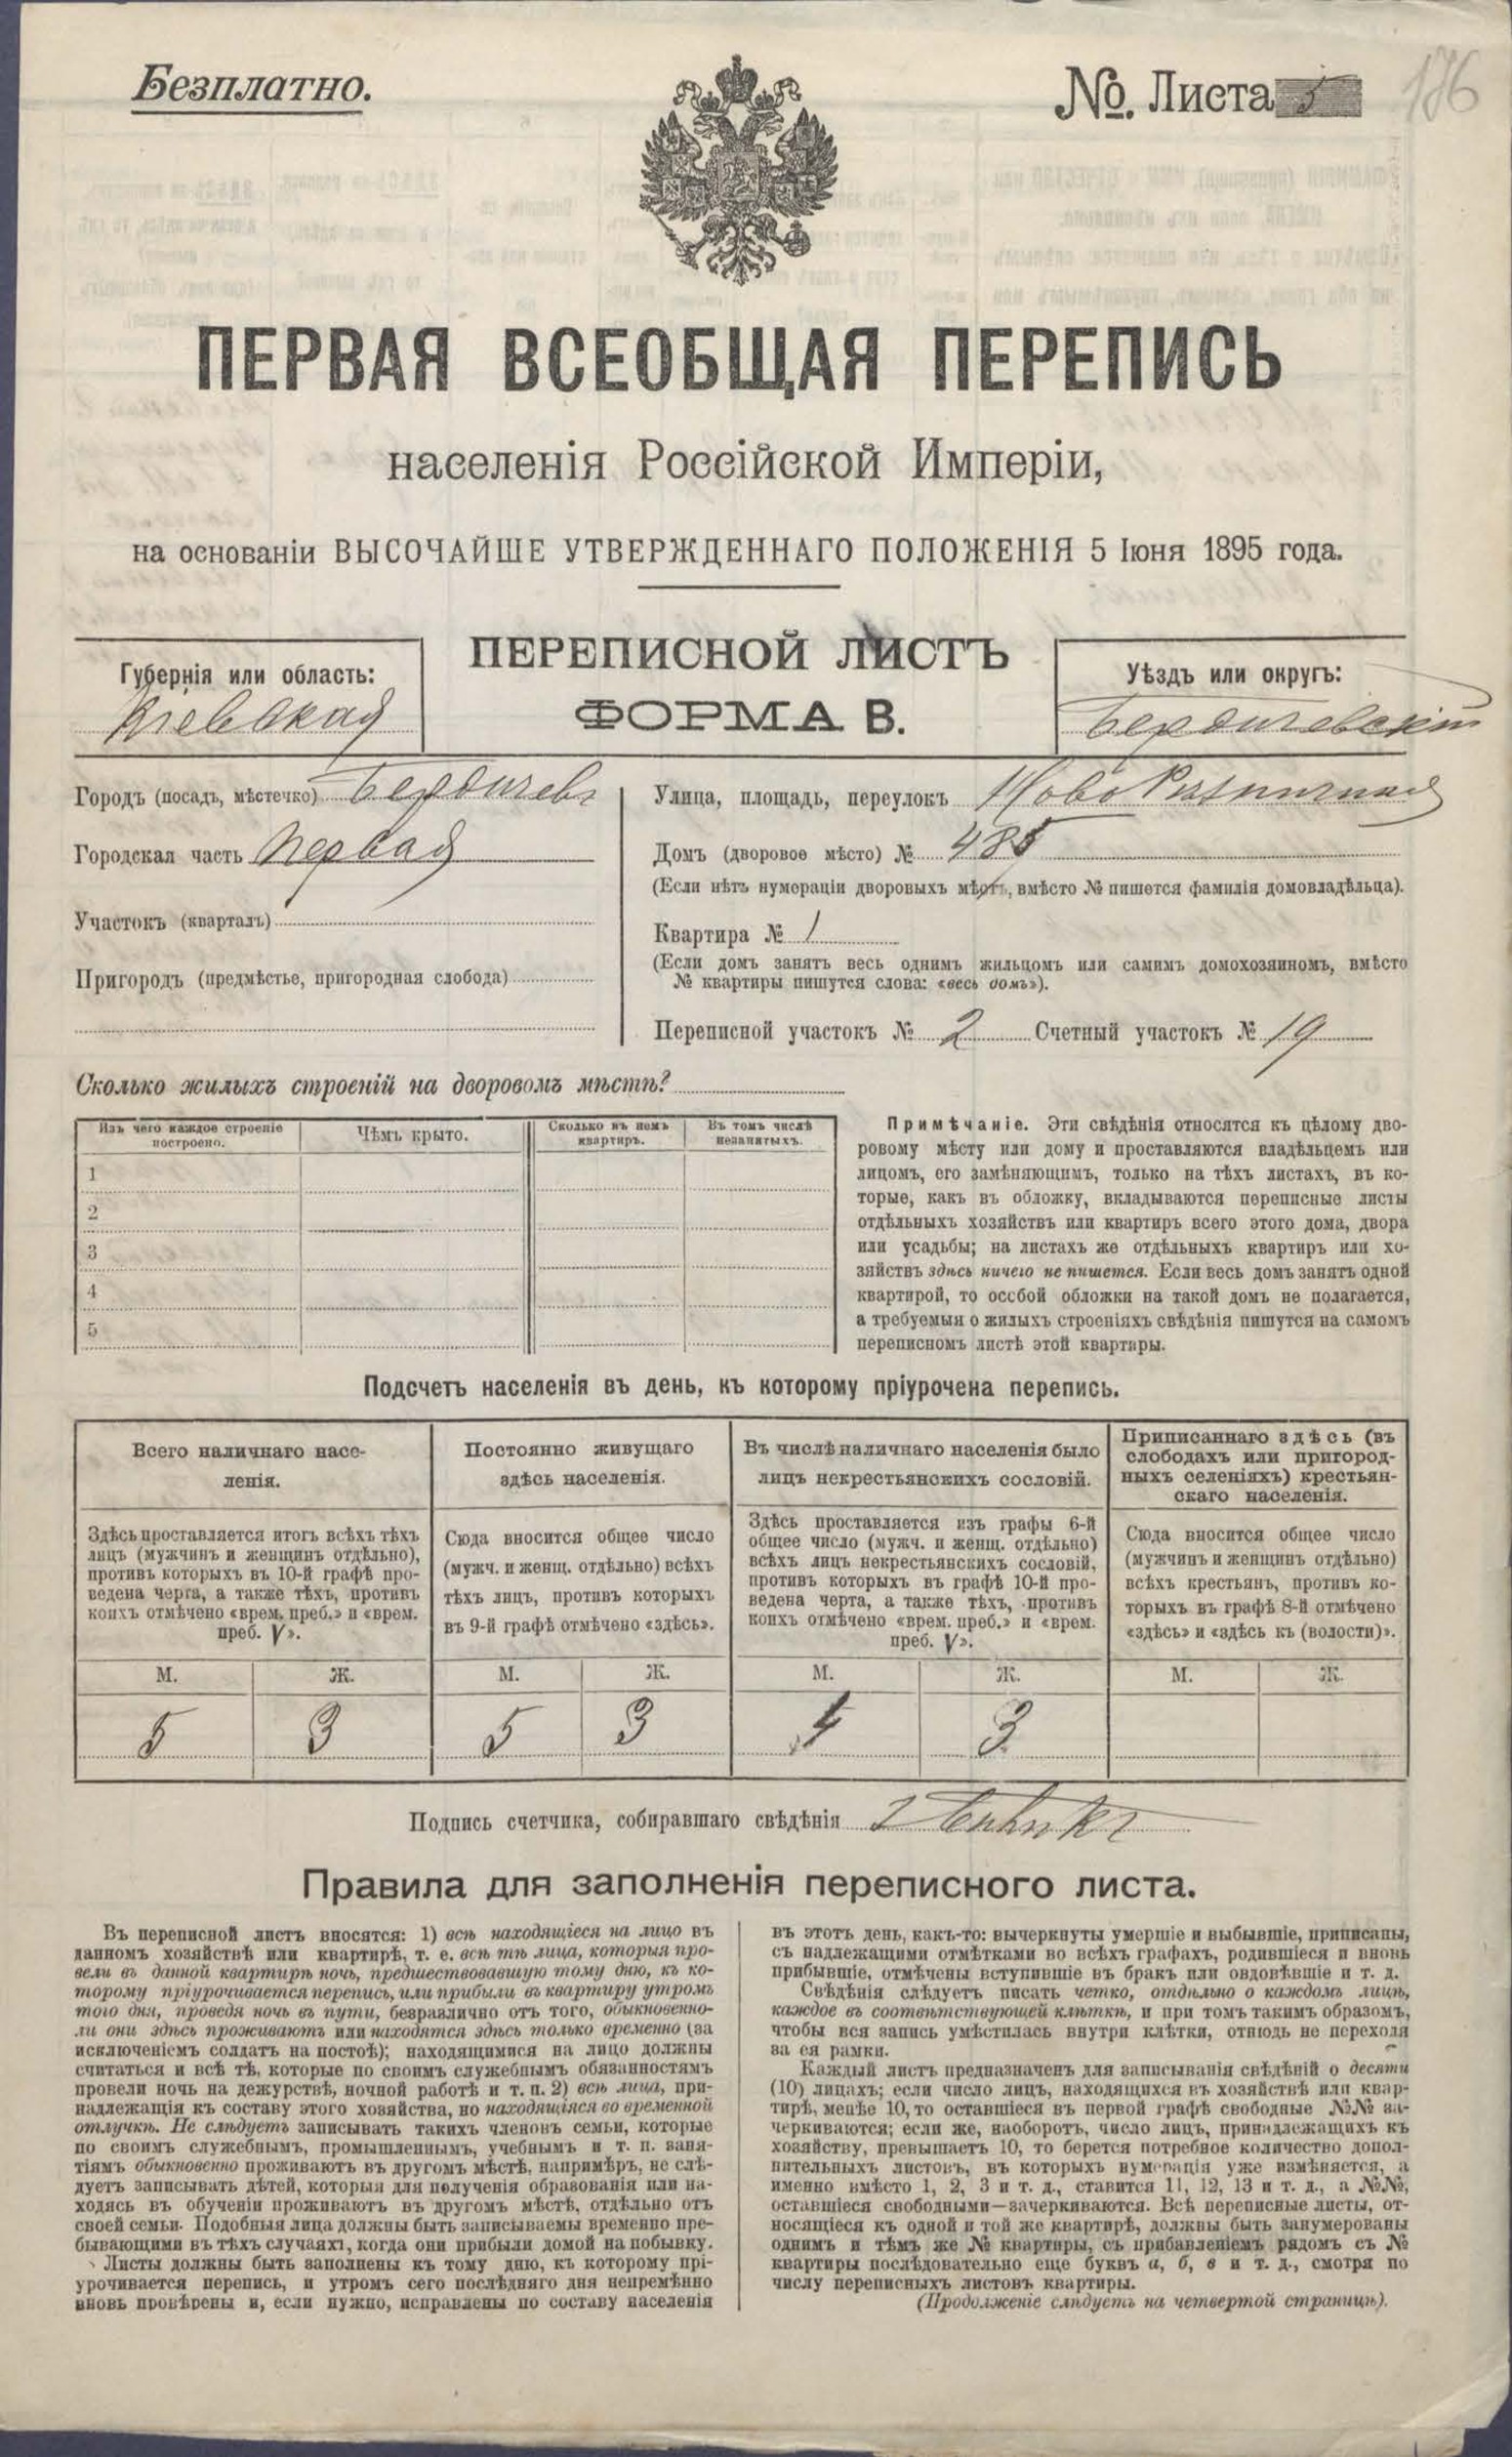 Безплатно.
№. Листа 5
186
ПЕРВАЯ ВСЕОБЩАЯ ПЕРЕПИСЬ
населенія Россійской Имперіи,
на основаніи ВЫСОЧАЙШЕ УТВЕРЖДЕННАГО ПОЛОЖЕНІЯ 5 Іюня 1895 года.
ПЕРЕПИСНОЙ ЛИСТЪ
ФОРМА В.
Губернія или область:
Кіевская
Уѣздъ или округъ:
Бердичевскій
Городъ (посадъ, мѣстечко) Бердичевъ
Городская часть Первая
Участокъ (кварталъ)
Пригородъ (предмѣстье, пригородная слобода)
Улица, площадь, переулокъ Ново
Домъ (дворовое мѣсто) № 485
(Если нѣтъ нумораціи дворовыхъ мѣстъ, вмѣсто № пишется фамилія домовладѣльца).
Квартира № 1
(Если домъ занятъ весь однимъ жильцомъ или самимъ домохозяиномъ, вмѣсто
№ квартиры пишутся слова: «весь домъ»).
Переписной участокъ № 2 Счетный участокъ № 19
Сколько жилыхъ строеній на дворовомъ мѣстѣ?
Изъ чего каждое строеніе построено.
Чѣмъ крыто.
Сколько въ немъ квартиръ.
Въ томъ числѣ незанятыхъ.
1
2
3
4
5
Примѣчаніе. Эти свѣдѣнія относятся къ цѣлому дво-
ровому мѣсту или дому и проставляются владѣльцемъ или
лицомъ, его замѣняющимъ, только на тѣхъ листахъ, въ ко-
торые, какъ въ обложку, вкладываются переписные листы
отдѣльныхъ хозяйствъ или квартиръ всего этого дома, двора
или усадьбы; на листахъ же отдѣльныхъ квартиръ или хо-
зяйствъ здѣсь ничего не пишется. Если весь домъ занятъ одной
квартирой, то особой обложки на такой домъ не полагается,
а требуемыя о жилыхъ строеніяхъ свѣдѣнія пишутся на самомъ
переписномъ листѣ этой квартиры.
Подсчетъ населенія въ день, къ которому пріурочена перепись.
Всего наличнаго насе-
ленія.
Здѣсь проставляется итогъ всѣхъ тѣхъ
лицъ (мужчинъ и женщинъ отдѣльно),
противъ которыхъ въ 10-й графѣ про-
ведена черта, а также тѣхъ, противъ
коихъ отмѣчено «врем. преб.» и «врем.
преб. V».
Постоянно живущаго
здѣсь населенія.
Сюда вносится общее число
(мужч. и женщ. отдѣльно) всѣхъ
тѣхъ лицъ, противъ которыхъ
въ 9-й графѣ отмѣчено «здѣсь».
Въ числѣ наличнаго населенія было
лицъ некрестьянскихъ сословій.
Здѣсь проставляется изъ графы 6-й
общее число (мужч. и женщ. отдѣльно)
всѣхъ лицъ некрестьянскихъ сословій,
противъ которыхъ въ графѣ 10-й про-
ведена черта, а также тѣхъ, противъ
коихъ отмѣчено «врем. преб.» и «врем.
преб. V».
Приписаннаго здѣсь (въ
слободахъ или пригород-
ныхъ селеніяхъ) крестьян-
скаго населенія.
Сюда вносится общее число
(мужчинъ и женщинъ отдѣльно)
всѣхъ крестьянъ, противъ ко-
торыхъ въ графѣ 8-й отмѣчено
«здѣсь» и «здѣсь къ (волости)».
М. Ж. М. Ж. М. Ж. М. Ж.
5 3 5 3 4 3
Подпись счетчика, собиравшаго свѣдѣнія
Правила для заполненія переписного листа.
Въ переписной листъ вносятся: 1) всѣ находящіеся на лицо въ
данномъ хозяйствѣ или квартирѣ, т. е. всѣ тѣ лица, которыя про-
вели въ данной квартирѣ ночь, предшествовавшую тому дню, къ ко-
торому пріурочивается перепись, или прибыли въ квартиру утромъ
того дня, проведя ночь въ пути, безразлично отъ того, обыкновенно-
ли они здѣсь проживаютъ или находятся здѣсь только временно (за
исключеніемъ солдатъ на постоѣ); находящимися на лицо должны
считаться и всѣ тѣ, которые по своимъ служебнымъ обязанностямъ
провели ночь на дежурствѣ, ночной работѣ и т. п. 2) всѣ лица, при-
надлежащія къ составу этого хозяйства, но находящіяся во временной
отлучкѣ. Не слѣдуетъ записывать такихъ членовъ семьи, которые
по своимъ служебнымъ, промышленнымъ, учебнымъ и т. п. заня-
тіямъ обыкновенно проживаютъ въ другомъ мѣстѣ, напримѣръ, не слѣ-
дуетъ записывать дѣтей, которыя для полученія образованія или на-
ходясь въ обученіи проживаютъ въ другомъ мѣстѣ, отдѣльно отъ
своей семьи. Подобныя лица должны быть записываемы временно пре-
бывающими въ тѣхъ случаяхъ, когда они прибыли домой на побывку.
Листы должны быть заполнены къ тому дню, къ которому прі-
урочивается перепись, и утромъ сего послѣдняго дня непремѣнно
вновь провѣрены и, если нужно, исправлены по составу населенія
въ этотъ день, какъ-то: вычеркнуты умершіе и выбывшіе, приписаны,
съ надлежащими отмѣтками во всѣхъ графахъ, родившіеся и вновь
прибывшіе, отмѣчены вступившіе въ бракъ или овдовѣвшіе и т. д.
Свѣдѣнія слѣдуетъ писать четко, отдѣльно о каждомъ лицѣ,
каждое въ соотвѣтствующей клѣткѣ, и при томъ такимъ образомъ,
чтобы вся запись умѣстилась внутри клѣтки, отнюдь не переходя
за ея рамки.
Каждый листъ предназначенъ для записыванія свѣдѣній о десяти
(10) лицахъ; если число лицъ, находящихся въ хозяйствѣ или квар-
тирѣ, менѣе 10, то оставшіеся въ первой графѣ свободные №№ за-
черкиваются; если же, наоборотъ, число лицъ, принадлежащихъ къ
хозяйству, превышаетъ 10, то берется потребное количество допол-
нительныхъ листовъ, въ которыхъ нумерація уже измѣняется, а
именно вмѣсто 1, 2, 3 и т. д., ставится 11, 12, 13 и т. д., а №№,
оставшіеся свободными—зачеркиваются. Всѣ переписные листы, от-
носящіеся къ одной и той же квартирѣ, должны быть занумерованы
однимъ и тѣмъ же № квартиры, съ прибавленіемъ рядомъ съ №
квартиры послѣдовательно еще буквъ а, б, в и т. д., смотря по
числу переписныхъ листовъ квартиры.
(Продолженіе слѣдуетъ на четвертой страницѣ).